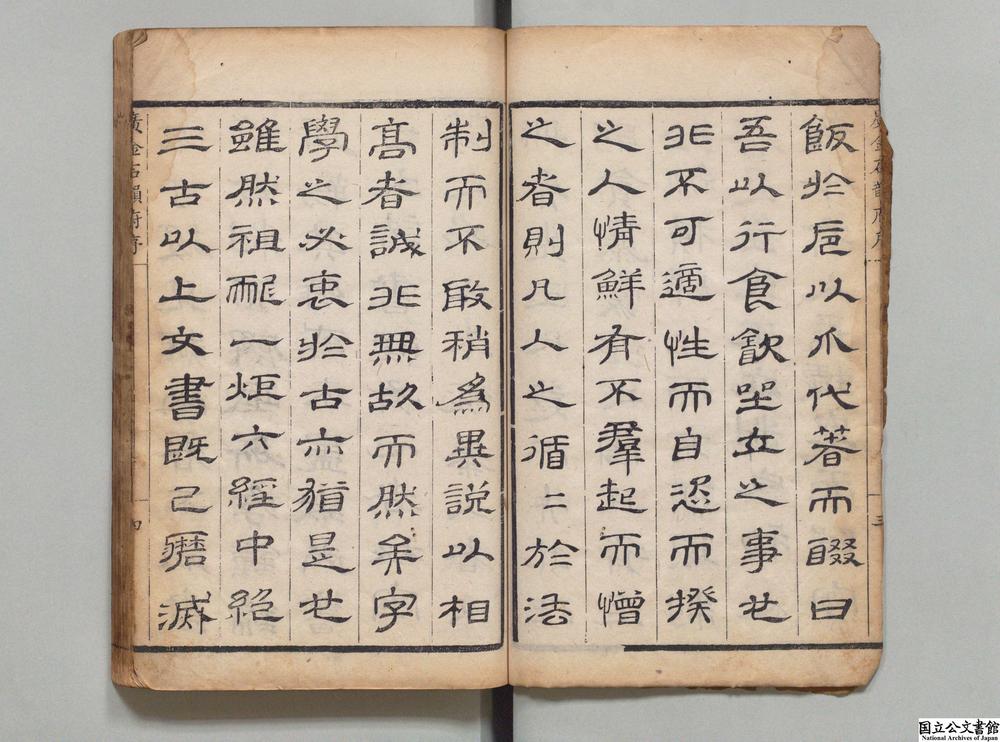 廣金石韻府序
三
飯於卮以爪代箸而啜曰
吾以行食飲坐立之事也
非不可適性而自恣而揆
之人情鮮有不羣起而憎
之者則凡人之循二於法
制而不敢稍爲異説以相
高者誠非無故而然矣字
學之必衷於古亦猶是也
雖然祖龍一炬六經中絕
三古以上文書既已磨滅
廣金石韻府序
四
国立公文書館
National Archives of Japan